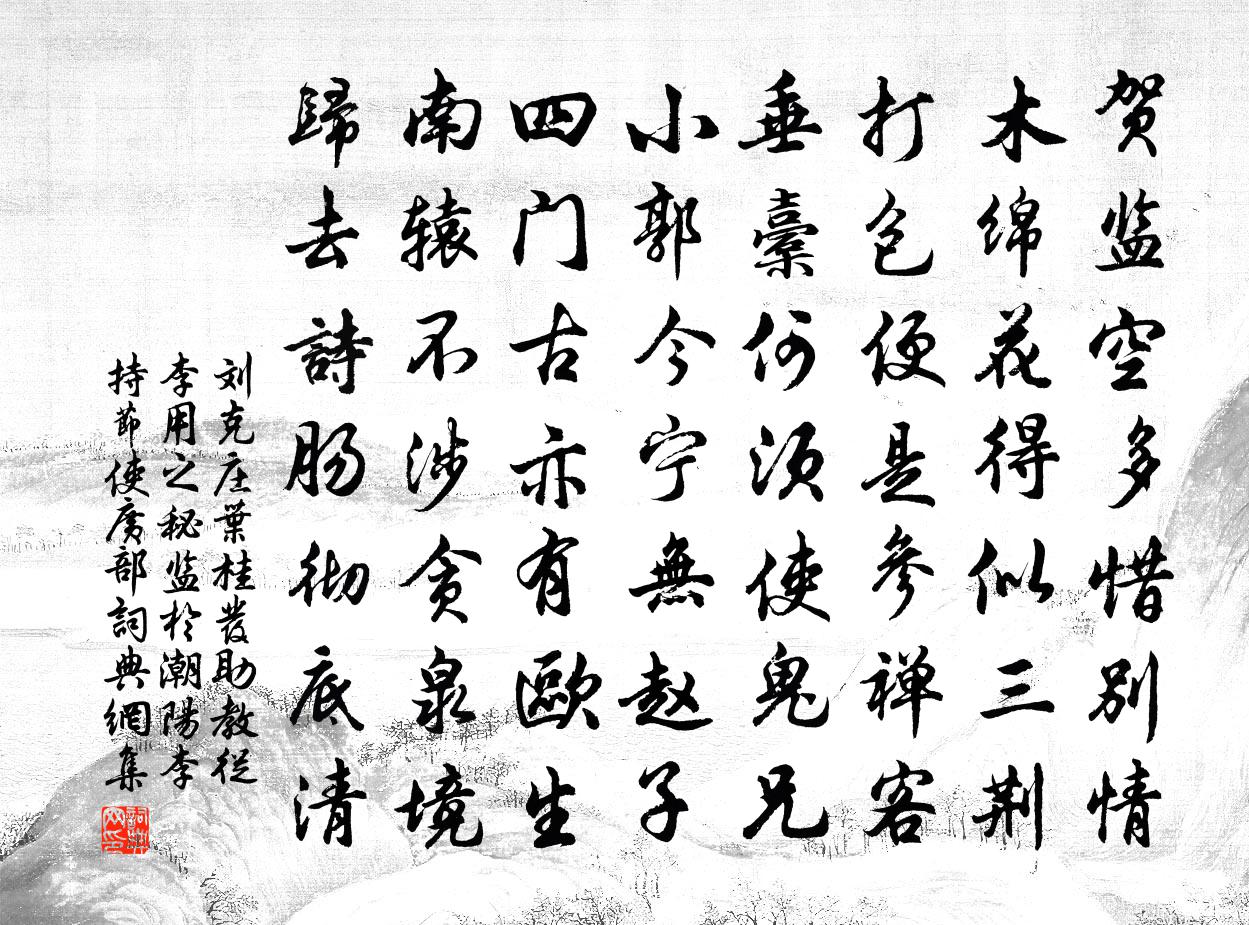 贺监空多惜别情
木绵花得似三荆
打包便是参禅客
垂橐何须使鬼兄
小郭今宁無赵子
四门古亦有歐生
南辕不涉贪泉境
歸去詩肠彻底清
刘克庄葉桂發助教從
李用之秘监於潮陽李
持節使廣部詞典網集